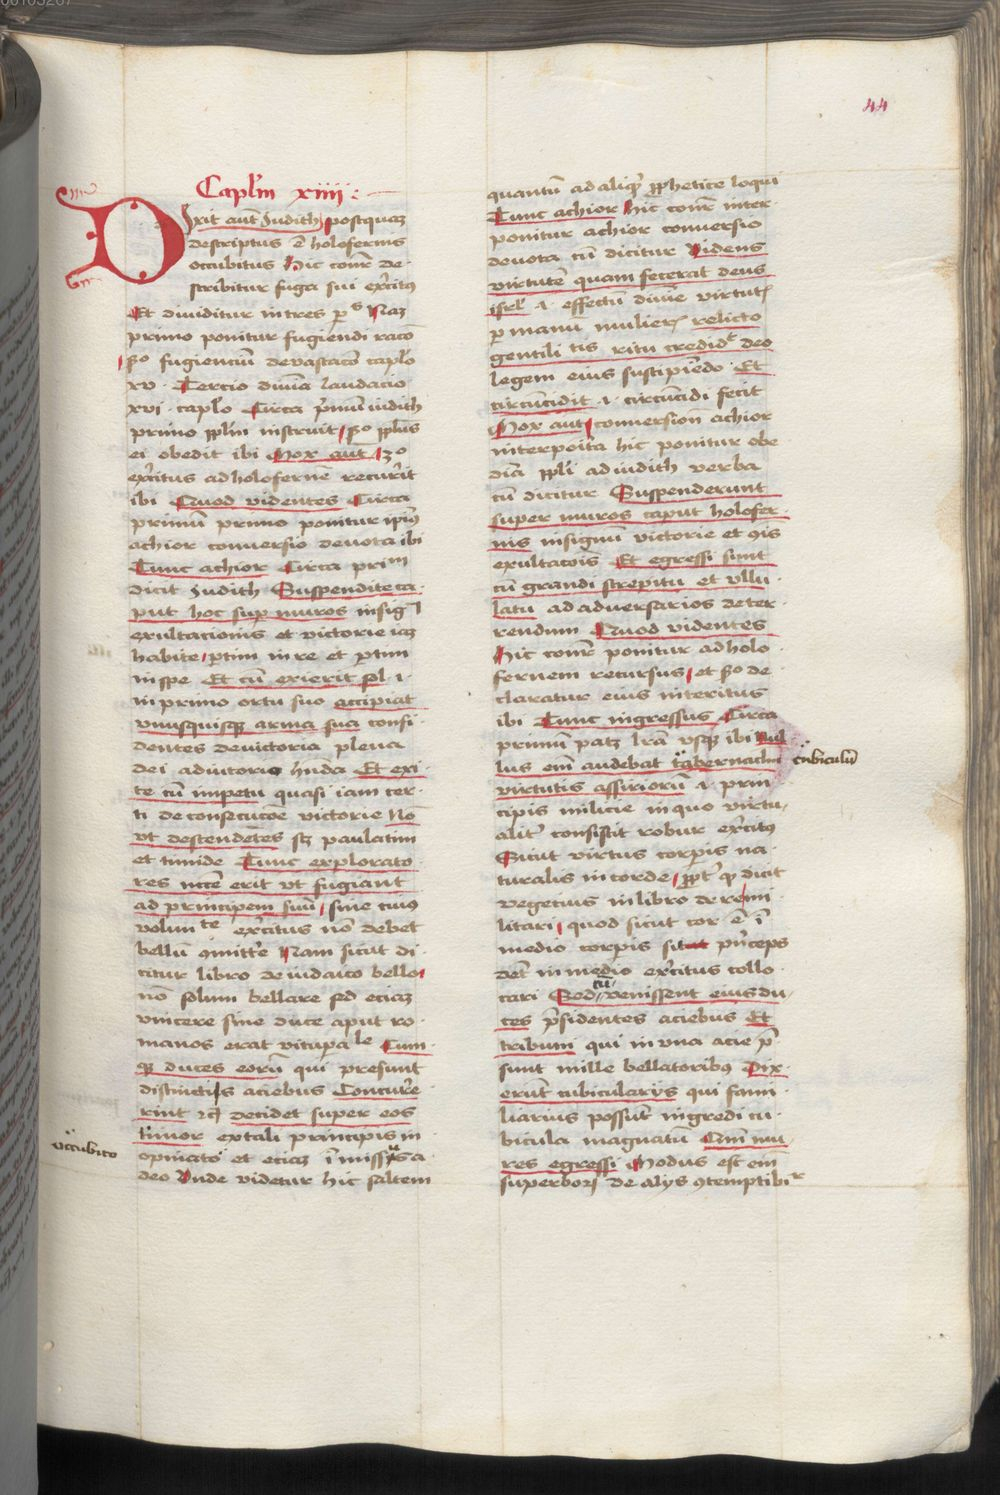 44
Caplm xiiii :
Dixit aut Judith postquaz
descriptus e holofernis
occubitus hic conr de
scribitur fuga sui exercitus
Et dividitur in tres ps Naz
primo ponitur fugiendi raco
fugiencium devastaco caplo
xv . Tercio divina laudacio
xvi . caplo Circa primum iudith
primo pplm instruit pplus
ei obedit ibi Mox aut
exercitus ad holofernem recurrit
ibi Quod videntes Circa
primum primo ponitur ipius
achior conversio devota ibi
Tunc achior Circa primm
dicit Judith Suspendite ca
put hoc sup muros insig
exultacionis et victorie iaz
habite ptim in re et ptim
in spe Et cum exierit sol .i.
in primo ortu suo accipiat
unusquisqz arma sua confi
dentes de victoria plena
dei adiutorio hnda Et exi
te cum impetu quasi iam cer
ti de consecucoe victorie No
ut descendetes sz paulatim
et timide Tunc explorato
res ncce erit ut fugiant
ad principem suum sine cuius
volunte exercitus no debet
bellum 9mitte Nam sicut di
citur libro de iudaico bello
no solum bellare sed eciaz
vincere sine duce aput ro
manos erat vitupale Cum
qz duces eorum qui presunt
distinctis aciebus Concurre
rint Decidet super eos
timor ex tali principis in
opinato et eciaz i missus a
deo Unde videtur hic saltem
occubito
quantum ad aliq pphetice loqui
Tunc achior hic conr inter
ponitur achior conversio
devota cum dicitur Videns
virtutem quam fecerat deus
isrl .i. effectum divine virtut
p manu mulier relicto
gentilitatis ritu credidt deo
legem eius suscipiedo Et
circuncidit .i. circuncidi fecit
Mox aut conversion achior
interposita hic ponitur obe
dia ppli ad iudith verba
cum dicitur Suspenderunt
super muros caput holofer
nis in signum victorie et 9is
exultacois Et egressi sunt
cum grandi strepitu et ullu
latu ad adversarios deter
rendum Quod videntes
hic conr ponitur ad holo
fernem recursus et de
claratur eius interitus
ibi Tunc ingressus Circa
primum patz lra usqz ibi Nul
lus eim audebat tabernaclm
cubiculum
virtutis assiriorum .i. prin
cipis milicie in quo virtu
alit consistit robur exercitus
Sicut virtus corpis na
turalis in corde ppt qd dicit
vegecius in libro de re mi
litari quod sicut cor e i
medio corpis sic princeps
det in medio exercitus collo
cari Sed cum venissent eius du
ces psidentes aciebus Et
tribuni qui in una acie p
sunt mille bellatoribus Dix
erunt cubicularijs qui fami
liarius possunt ingredi cu
bicula magnatum Quia mu
res egressi Modus est eim
superbor de alijs 9temptibir